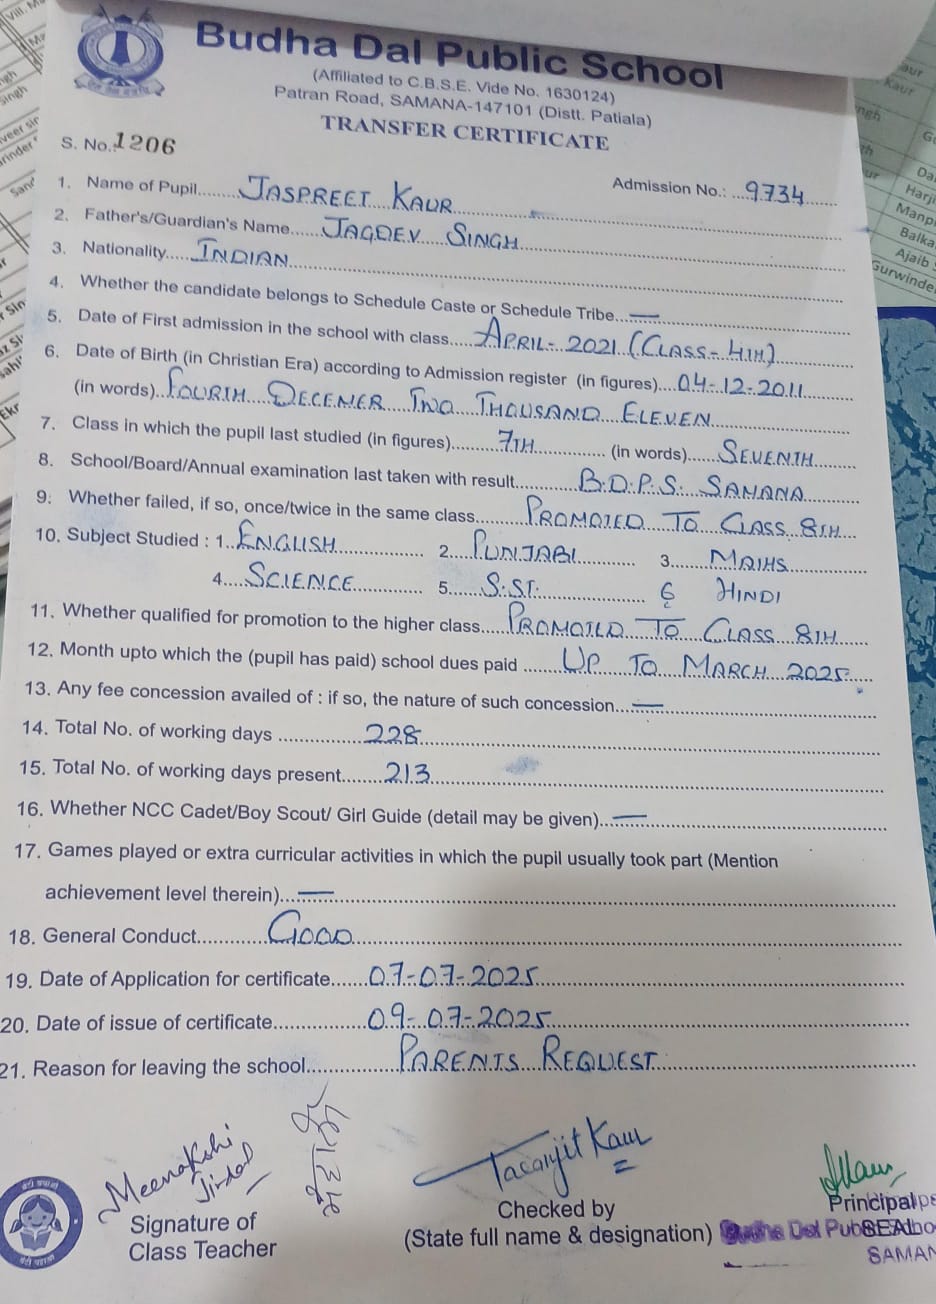 Budha Dal Public School
(Affiliated to C.B.S.E. Vide No. 1630124)
Patran Road, SAMANA-147101 (Distt. Patiala)
TRANSFER CERTIFICATE
S. No.:1206
Admission No.: ...9734
1. Name of Pupil........JASPREET KAUR
2. Father's/Guardian's Name......JAGDEV SINGH
3. Nationality.....INDIAN
4. Whether the candidate belongs to Schedule Caste or Schedule Tribe...—
5. Date of First admission in the school with class.....APRIL- 2021 (CLASS- 4TH)
6. Date of Birth (in Christian Era) according to Admission register (in figures)....04-12-2011
(in words)..FOURTH DECEMER TWO THOUSAND ELEVEN
7. Class in which the pupil last studied (in figures)..........7TH............ (in words)......SEVENTH
8. School/Board/Annual examination last taken with result............B.D.P.S. SAMANA
9. Whether failed, if so, once/twice in the same class.........PROMOTED TO CLASS 8TH
10. Subject Studied : 1..ENGLISH 2....PUNJABI 3.......MATHS
4....SCIENCE 5......S.ST. 6 HINDI
11. Whether qualified for promotion to the higher class.....PROMOTED TO CLASS 8TH
12. Month upto which the (pupil has paid) school dues paid .......UP TO MARCH 2025
13. Any fee concession availed of : if so, the nature of such concession...—
14. Total No. of working days ...............228
15. Total No. of working days present........213
16. Whether NCC Cadet/Boy Scout/ Girl Guide (detail may be given)..—
17. Games played or extra curricular activities in which the pupil usually took part (Mention
achievement level therein)...—
18. General Conduct............GOOD
19. Date of Application for certificate......07-07-2025
20. Date of issue of certificate................09-07-2025
21. Reason for leaving the school...............PARENTS REQUEST
Meenakshi
Jindal
Signature of
Class Teacher
Kaur
Checked by
(State full name & designation)
Principal
SEAL
Budha Dal Pub
SAMAN